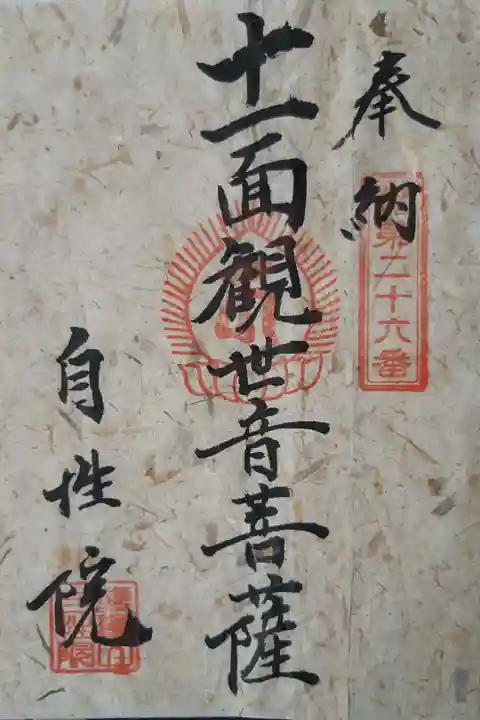 奉納
第二十六番
十一面観世音菩薩
自性院